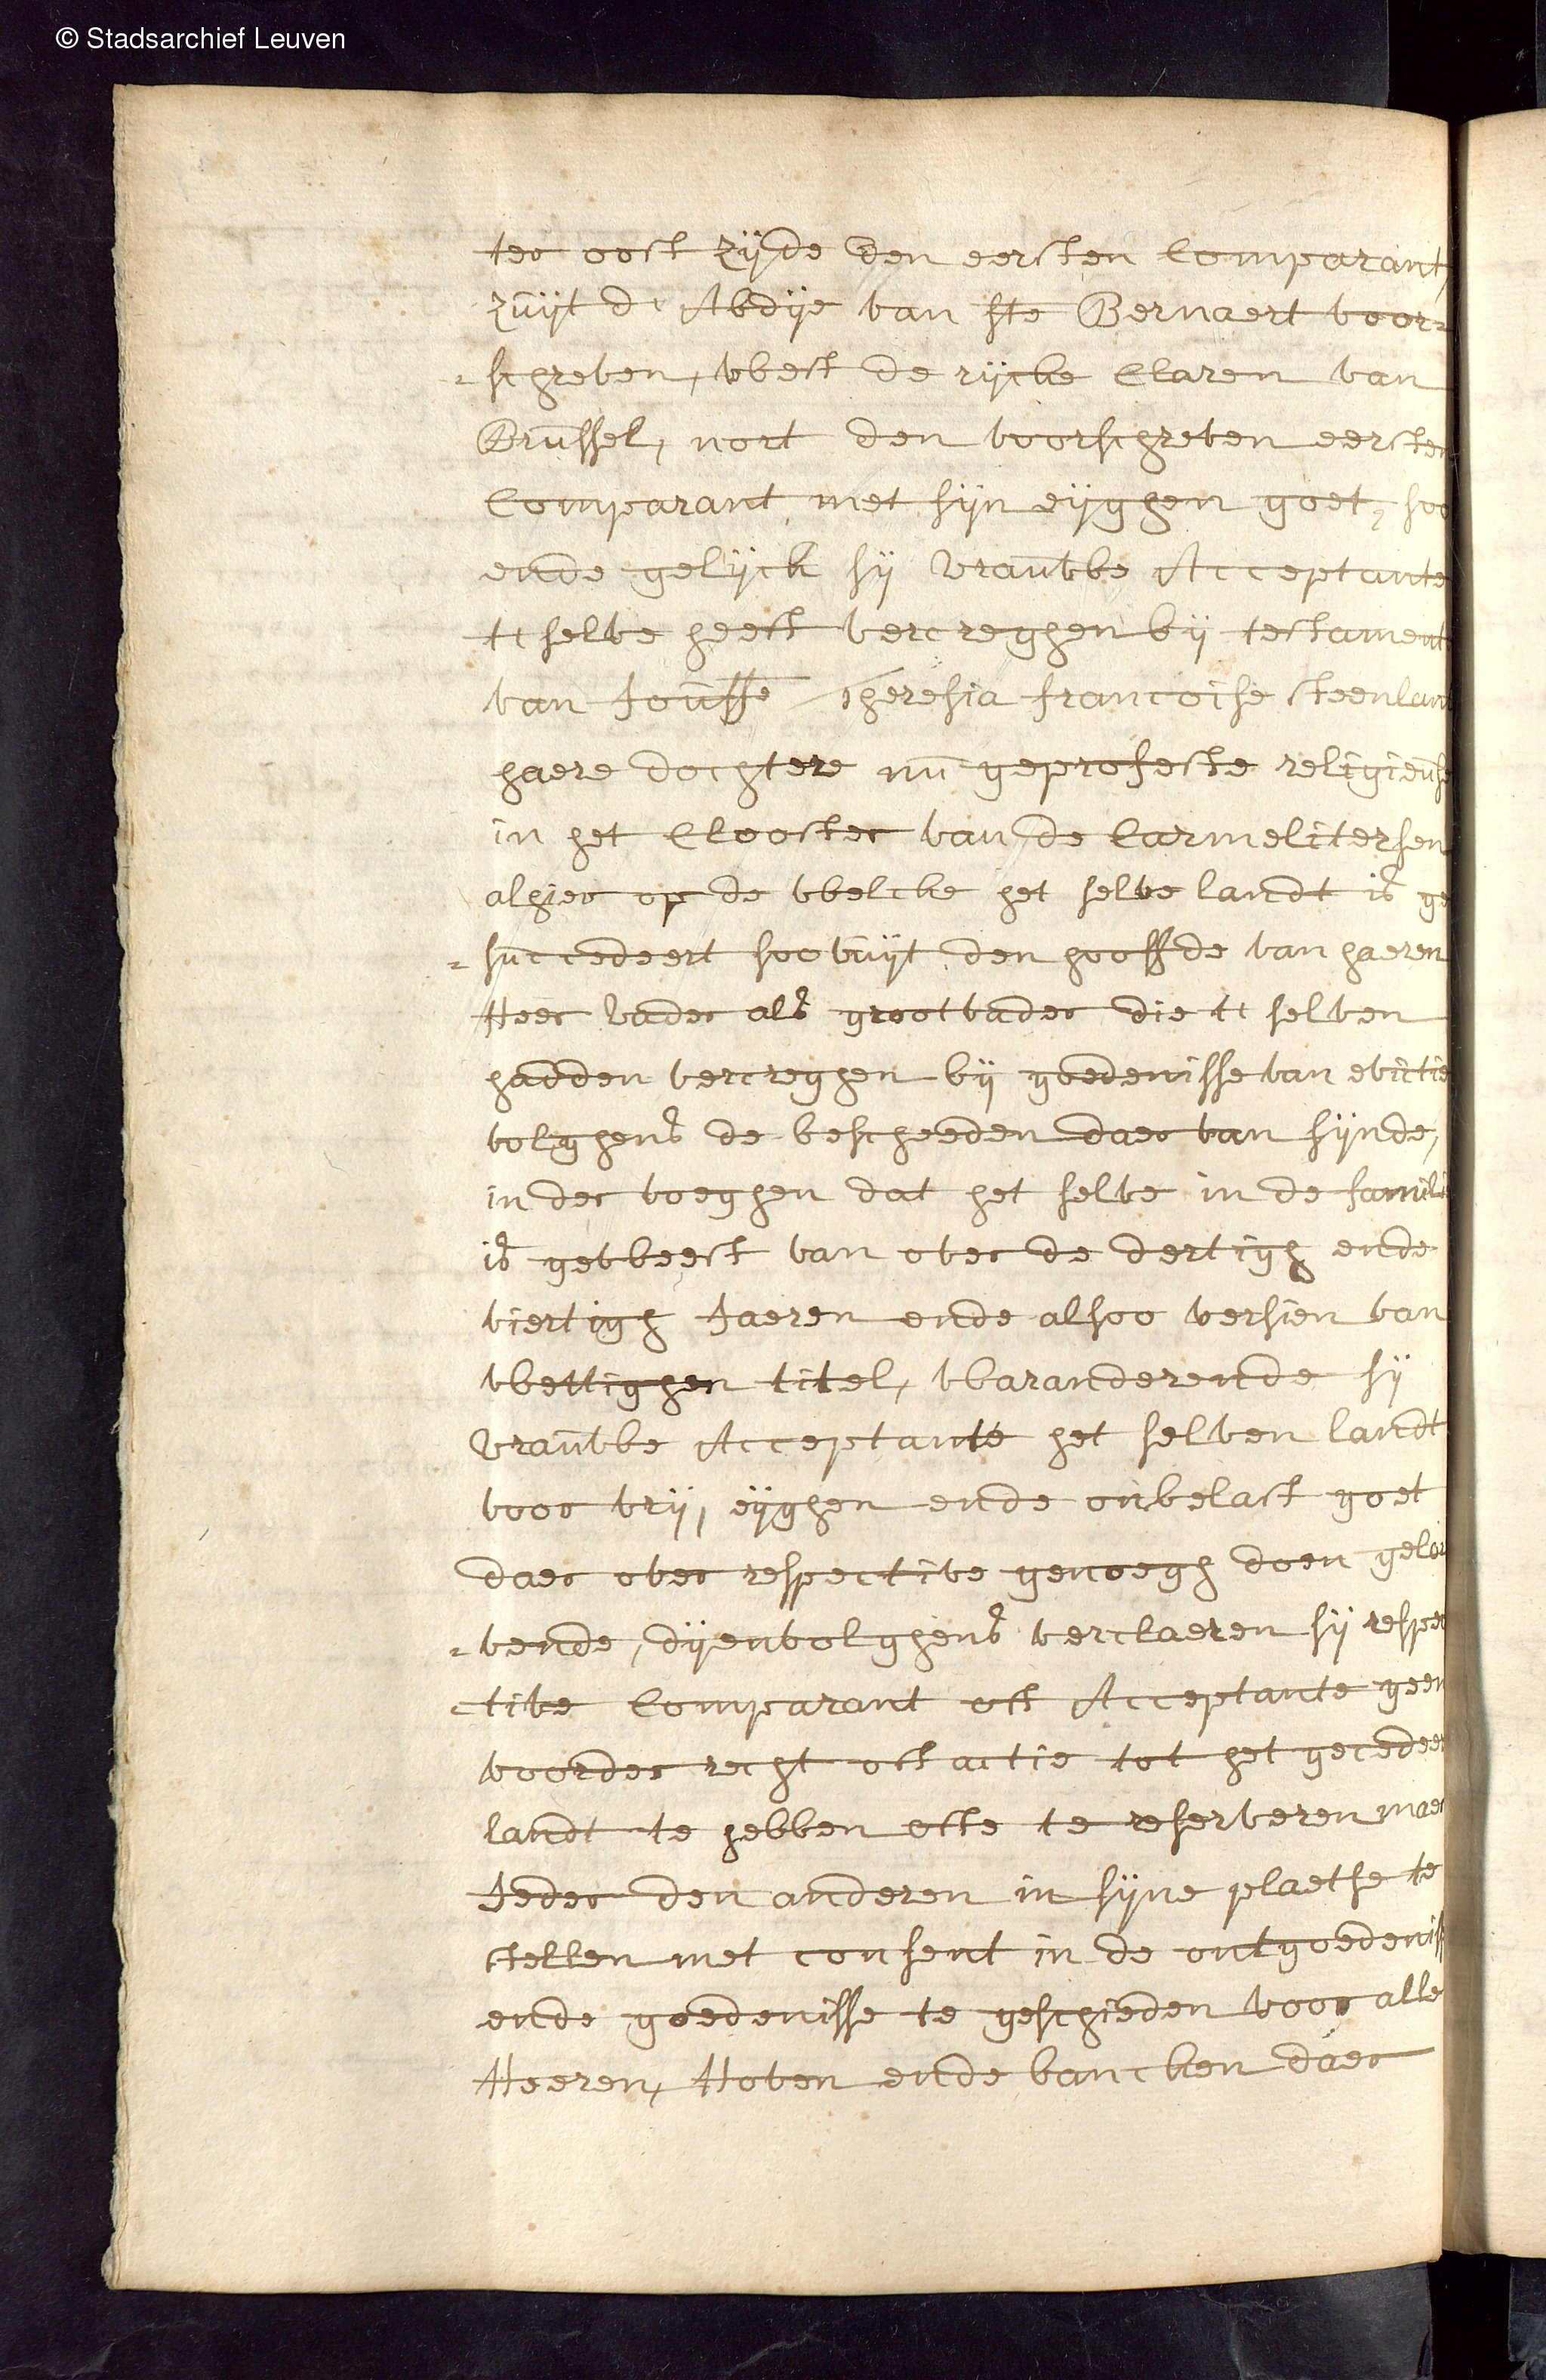 © Stadsarchief Leuven
ter oost zÿde den eersten Comparant,
zuÿt d' Abdÿe van ste Bernaert voor=
=schreven, west de rÿcke Claren van
Brussel, nort den voorschreven eersten
Comparant met sÿn eÿghen goet, soo
ende gelÿck sÿ vrauwe Acceptante
tt selve heeft vercreghen bÿ testament
van Jouffe Theresia francoise steenlant
haere dochtere nu geprofeste religieuse
in het Clooster van de Carmelitersen
alhier op de welcke het selve landt is ge
=succedeert soo vuÿt den hooffde van haeren
Heer vader als grootvader die tt selven
hadden vercreghen bÿ goedenisse van evictie
volghens de bescheeden daer van sÿnde,
in der voeghen dat het selve in de famili
is geweest van over de dertigh ende
viertigh Jaeren ende alsoo versien van
wettighen titel, waranderende sÿ
vrauwe Acceptante het selven landt
voor vrÿ, eÿghen ende onbelast goet
daer over respective genoegh doen geloo
=vende, dÿenvolghens verclaeren sÿ respec
=tive Comparant oft Acceptante geen
voorder recht oft actie tot het gecedeer
landt te hebben ofte te reserveren maer
Jeder den anderen in sÿne plaetse te
stellen met consent in de ontgoedeniss
ende goedenisse te geschieden voor alle
Heeren, Hoven ende bancken daer